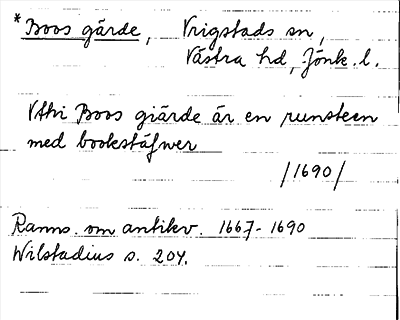 * Boos gärde, Vrigstads sn,
Västra hd, Jönk. l.
Uthi Boos giärde är en runsteen
med bookstäfwer
/1690/
Ranns. om antikv. 1667-1690
Wilstadius s. 204.